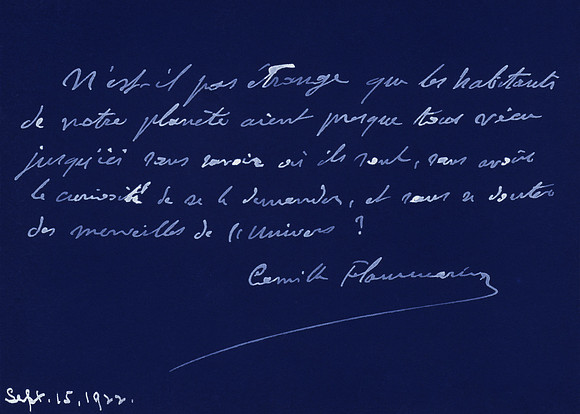 N'est-il pas étrange que les habitants
de notre planète aient presque tous vécu
jusqu'ici sans savoir où ils sont, sans avoir
la curiosité de se le demander, et sans se douter
des merveilles de l'Univers ?
Camille Flammarion
Sept. 15, 1922.